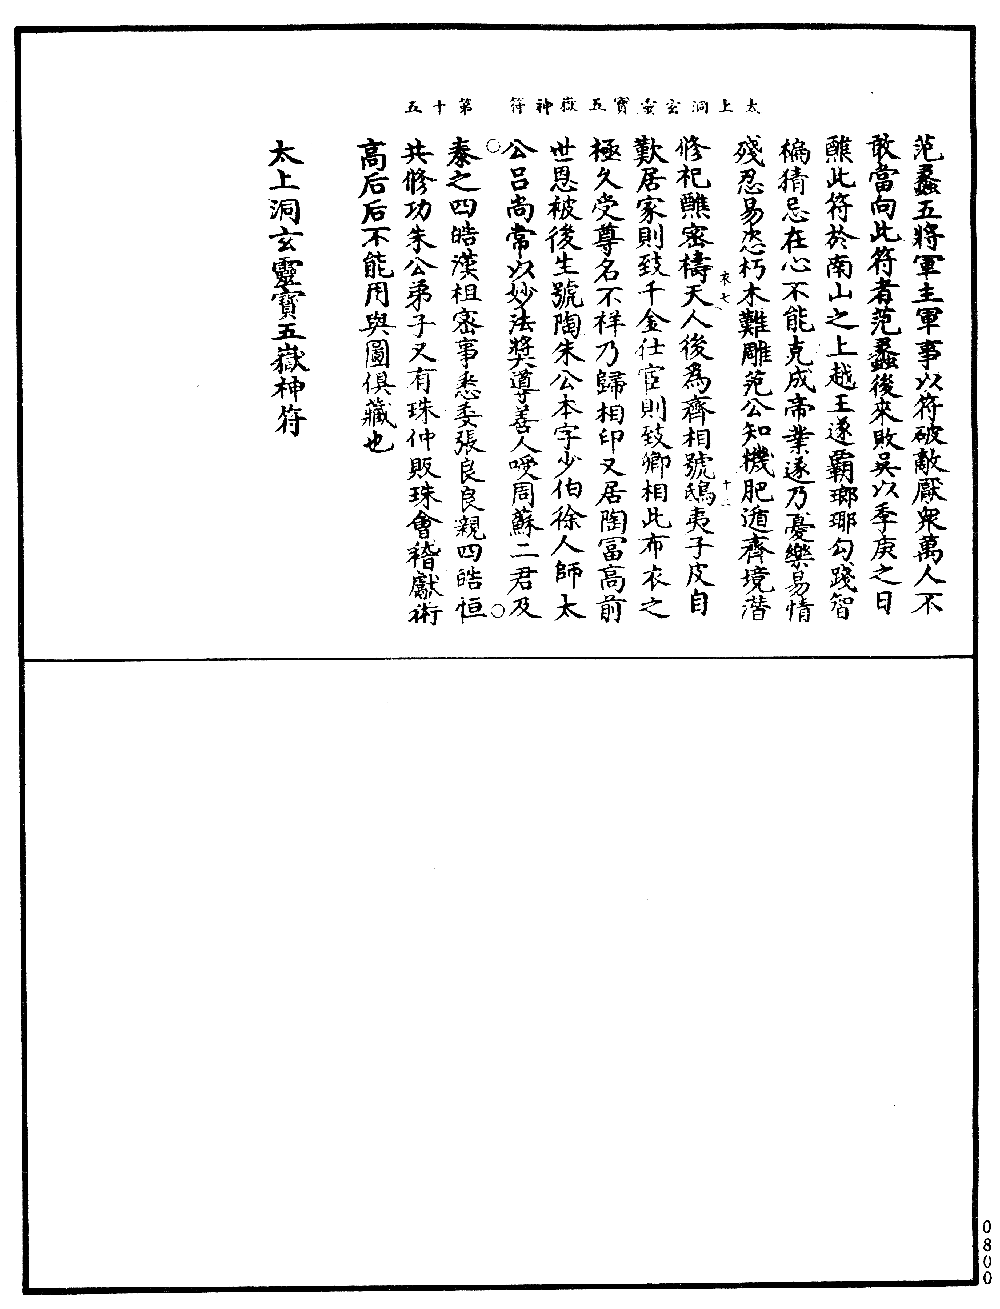 太上洞玄靈寶五嶽神符　第十五
范蠡五將軍主軍事以符破敵厭衆萬人不
敢當向此符者范蠡後來敗吳以季庚之日
醮此符於南山之上越王遂霸瑯琊勾踐智
褊猜忌在心不能克成帝業遂乃憂樂易情
殘忍易恣朽木難雕范公知機肥遁齊境潛
衣七　十二
修祀醮密禱天人後為齊相號鴟夷子皮自
歎居家則致千金仕官則致卿相此布衣之
極久受尊名不祥乃歸相印又居陶冨高前
世恩被後生號陶朱公本字少伯徐人師太
公吕尚常以妙法奬導善人嘤周蘇二君及
秦之四皓漢祖密事悉委張良良親四皓恒
共修功朱公弟子又有珠仲販珠會稽獻術
高后后不能用與圖俱藏也
太上洞玄靈寶五嶽神符
0800